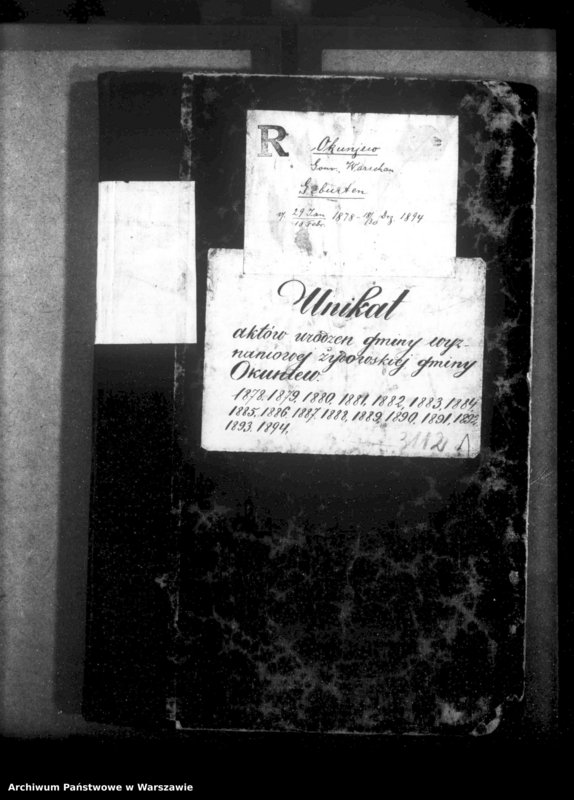 R
Okunjew
Gouv. Warschau
Geburten
v/ 29 Jan / 10 Febr. 1878 - 18/30 Dez. 1894
Unikat
aktów urodzeń gminy wyz-
naniowej żydowskiej gminy
Okuniew.
1878, 1879, 1880, 1881, 1882, 1883, 1884,
1885, 1886, 1887, 1888, 1889, 1890, 1891, 1892,
1893, 1894.
3112
Archiwum Państwowe w Warszawie